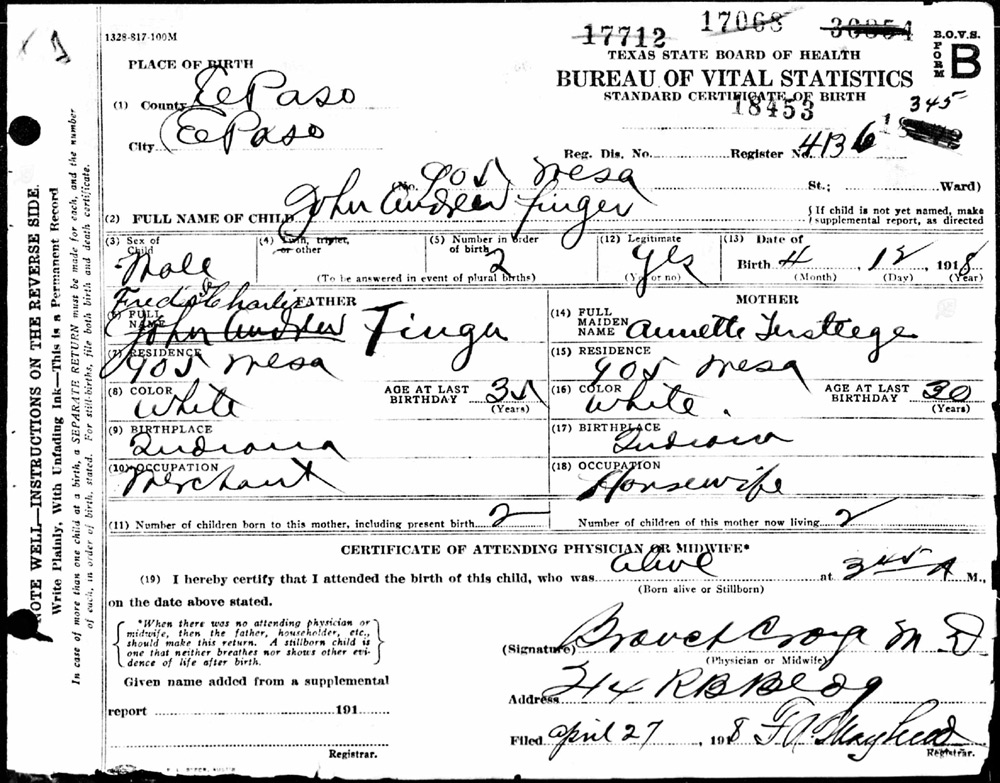 1328-817-100M
17712 17068 30854
B.O.V.S.
FORM B
TEXAS STATE BOARD OF HEALTH
BUREAU OF VITAL STATISTICS
STANDARD CERTIFICATE OF BIRTH
18453
345
PLACE OF BIRTH
(1) County El Paso
City El Paso
Reg. Dis. No. Register No. 4136
(No. 905 Mesa St.; Ward)
(2) FULL NAME OF CHILD John Andrew Finger
{ If child is not yet named, make
supplemental report, as directed
(3) Sex of Child Male
(4) Twin, triplet, or other
(5) Number in order of birth 2
(To be answered in event of plural births)
(12) Legitimate Yes
(Yes or no)
(13) Date of Birth 4, 12, 1918
(Month) (Day) (Year)
FATHER
Fred Charlie
(6) FULL NAME John Andrew Finger
(7) RESIDENCE 905 Mesa
(8) COLOR White AGE AT LAST BIRTHDAY 35
(Years)
(9) BIRTHPLACE Indiana
(10) OCCUPATION Merchant
(11) Number of children born to this mother, including present birth 2
MOTHER
(14) FULL MAIDEN NAME Annette
(15) RESIDENCE 905 Mesa
(16) COLOR White. AGE AT LAST BIRTHDAY 30
(Years)
(17) BIRTHPLACE Indiana
(18) OCCUPATION Housewife
Number of children of this mother now living 2
CERTIFICATE OF ATTENDING PHYSICIAN OR MIDWIFE*
(19) I hereby certify that I attended the birth of this child, who was alive at 3 45 A M.,
(Born alive or Stillborn)
on the date above stated.
{ *When there was no attending physician or
midwife, then the father, householder, etc.,
should make this return. A stillborn child is
one that neither breathes nor shows other evi-
dence of life after birth. }
Given name added from a supplemental
report 191
Registrar.
(Signature) Branch Craige M D
(Physician or Midwife)
Address 214 R B Bldg
Filed April 27, 1918
Registrar.
NOTE WELL—INSTRUCTIONS ON THE REVERSE SIDE.
Write Plainly, With Unfading Ink—This is a Permanent Record
In case of more than one child at a birth, a SEPARATE RETURN must be made for each, and the number
of each, in order of birth, stated. For still-births, file both birth and death certificate.